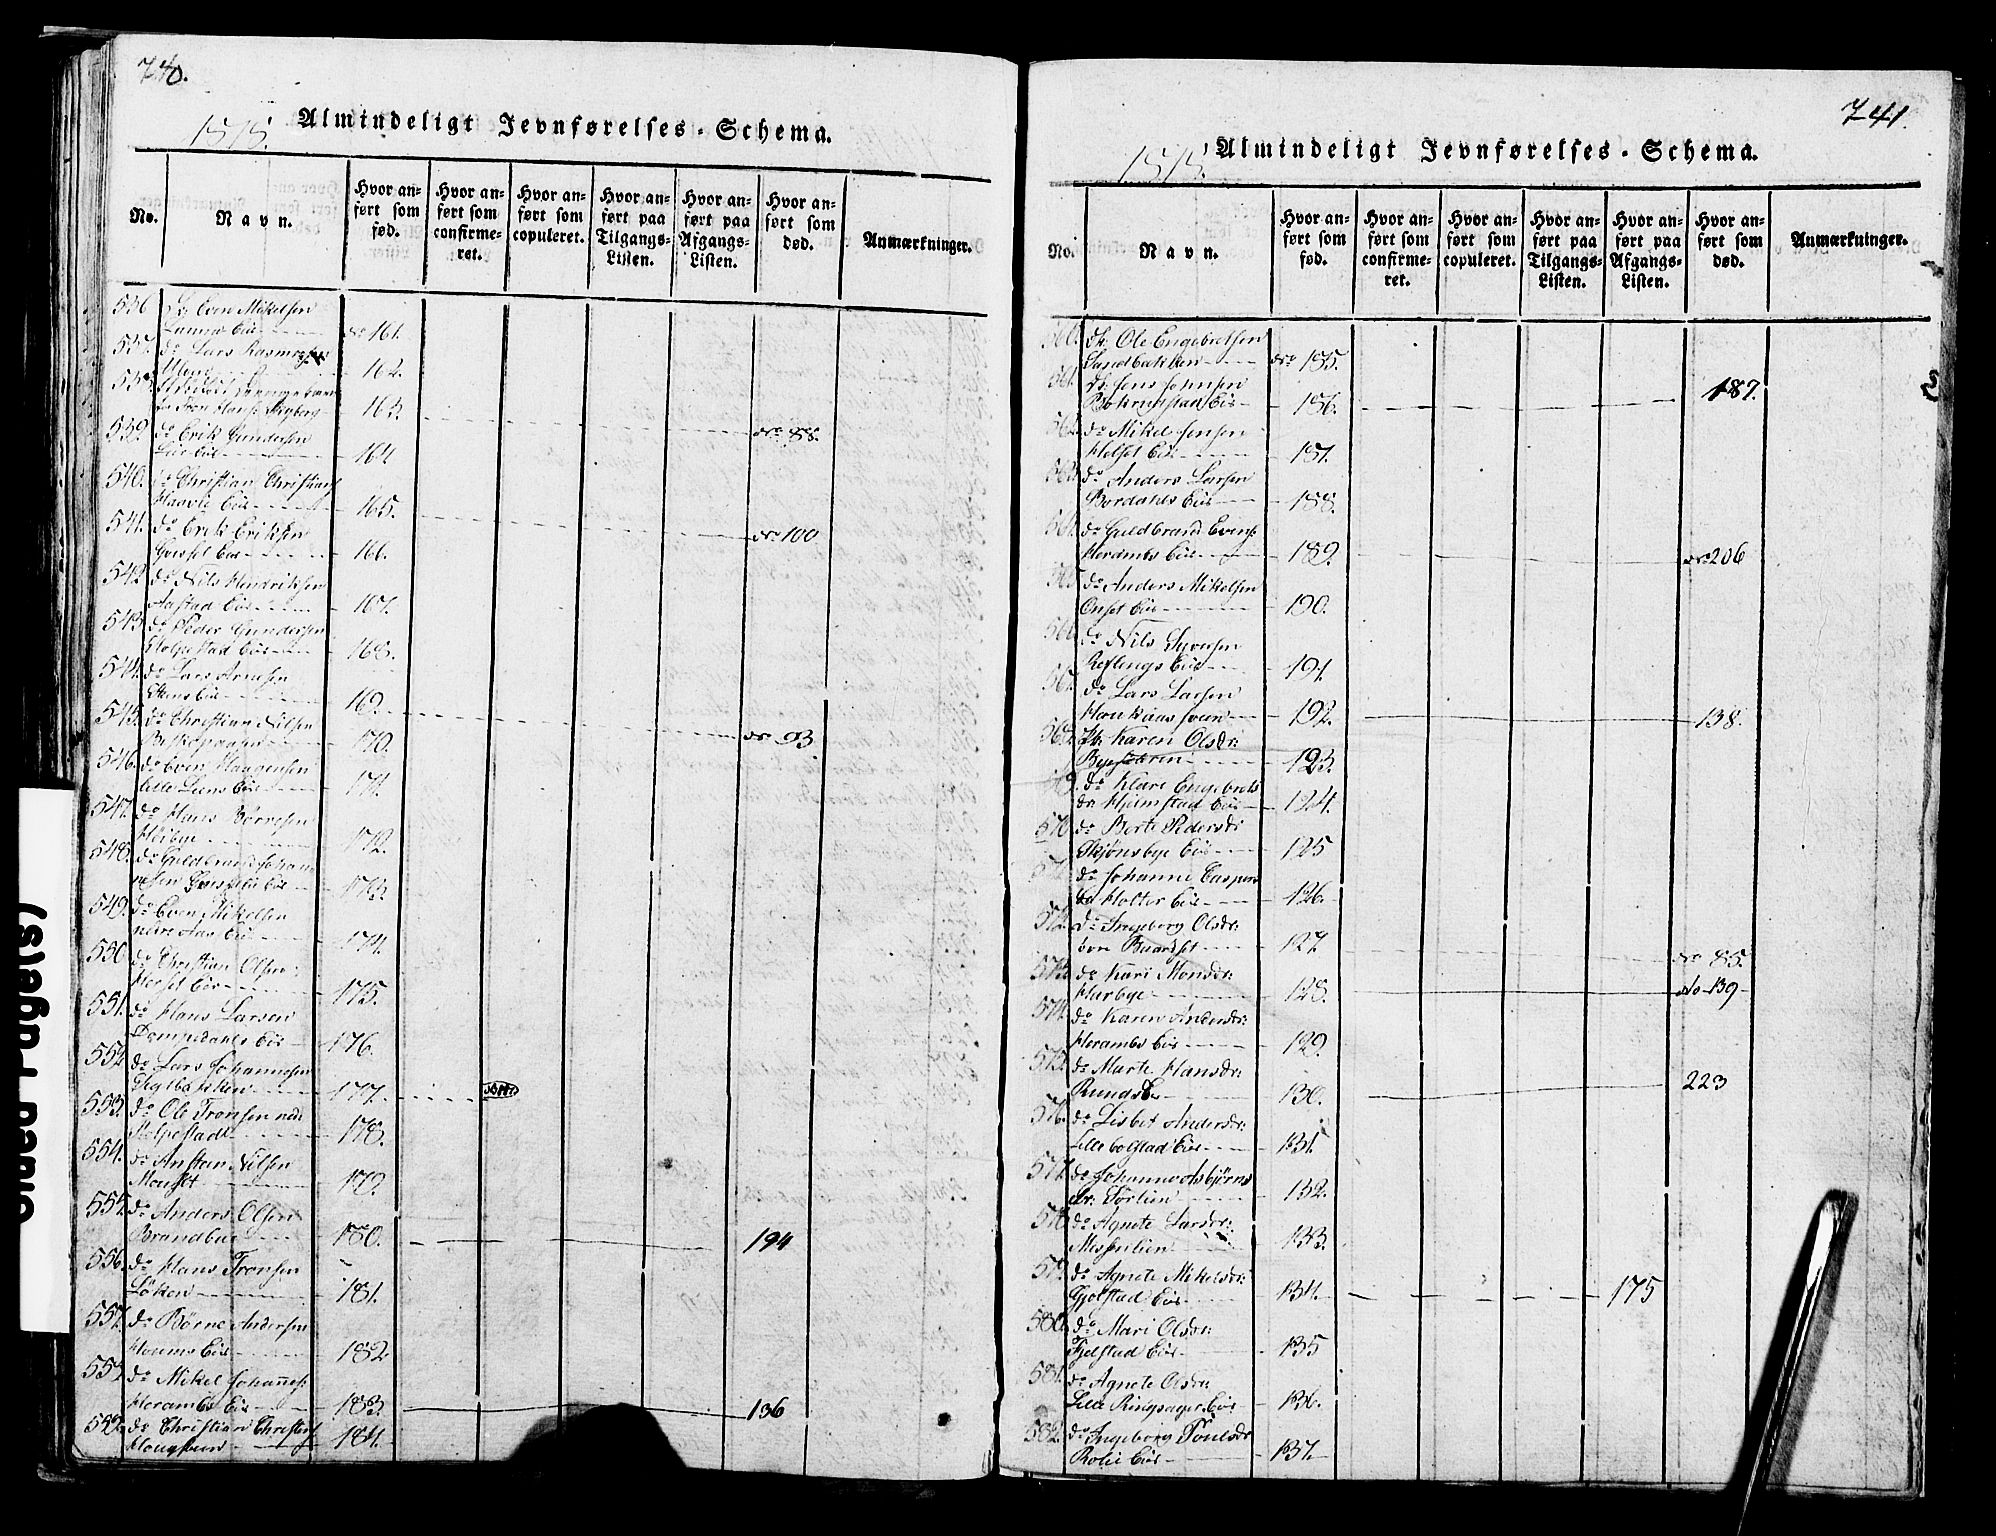 740.
1818.
Almindeligt Jevnførelses-Schema.
No.
Navn.
Hvor anført som fød.
Hvor anført som confirmeret.
Hvor anført som copuleret.
Hvor anført paa Tilgangs-Listen.
Hvor anført paa Afgangs-Listen.
Hvor anført som død.
Anmærkninger.
536 Even Mikelsen
Eie No 161.
537. do Lars Rasmus
162.
163.
539. do Erik Gundersen
Eie 164 No 88.
540. do Christian Christians
Haavie Eie 165.
541. do Erik Eriksen
Eie 166. No 100
542 do Nils Hendriksen
Aastad Eie 167.
543. do Peder Gundersen
Stolpestad Eie 168.
544. do Lars Arnesen
Stens Eie 169.
545. do Christian Nilsen
170. No 93
546. do Even Haagensen
lille Liens Eie 171
547. do Hans Børresen
Høibye 172.
548. do Guldbrand Johan
nesen Eie 173.
549. do Even Mikelsen
nedre Aas Eie 174.
550 do Christian Olsen
Horset Eie 175.
551. do Hans Larsen
Dompedahls Eie 176.
552 do Lars Johannesen
Teglbakken 177.
553. do Ole Tronsen ned:
Stolpestad 178.
554. do Anstan Nilsen
Monset 179.
555. do Anders Olsen
Brandbue 180. 194
556. do Hans Tronsen
Løken 181.
557. do Børre Andersen
Eie 182
558 do Mikel Johannes:
Herambs Eie 183. 136
559. do Christian Christens
184.
741.
1818.
Almindeligt Jevnførelses-Schema.
No.
Navn.
Hvor anført som fød.
Hvor anført som confirmeret.
Hvor anført som copuleret.
Hvor anført paa Tilgangs-Listen.
Hvor anført paa Afgangs-Listen.
Hvor anført som død.
Anmærkninger.
560. Ole Engebretsen
Sandbakken No 185.
561. Jens Johnsen
Eie 186. 187.
562. do Mikel Jensen
Helset Eie 187.
563. do Anders Larsen
Bordahls Eie 188.
564. do Guldbrand Evens:
Herambs Eie 189. No 206
565. do Anders Mikelsen
Onset Eie 190.
566. do Nils Syversen
Reflings Eie 191.
567. do Lars Larsen
192. 138.
568. Karen Olsdr:
123.
569. do Klare Engebrets
dr: Hjelmstad Eie 124.
570 do Berte Pedersdr
Skjønsbye Eie 125
571. do Johanne Caspers
dr Holter Eie 126.
572. do Ingeborg Olsdr:
Baardset 127 No 85.
573. do Kari Monsdr:
Harbye 128. No 139
574. do Karen Andersdr:
Herambs Eie 129.
575. do Marte Hansdr:
Runds Eie 130. 223
576. do Lisbet Andersdr:
Lille bolstad Eie 131.
577. do Johanne Asbjørns
dr: Torlien 132.
578. do Agnete Larsdr:
Messenlien 133.
579. do Agnete Mikelsdr:
Gjølstad Eie 134. 175
580. do Mari Olsdr:
Fjelstad Eie 135
581. do Agnete Olsdr:
Lille Ringsager Eie 136.
582. do Ingeborg Poulsdr
Rolie Eie 137.